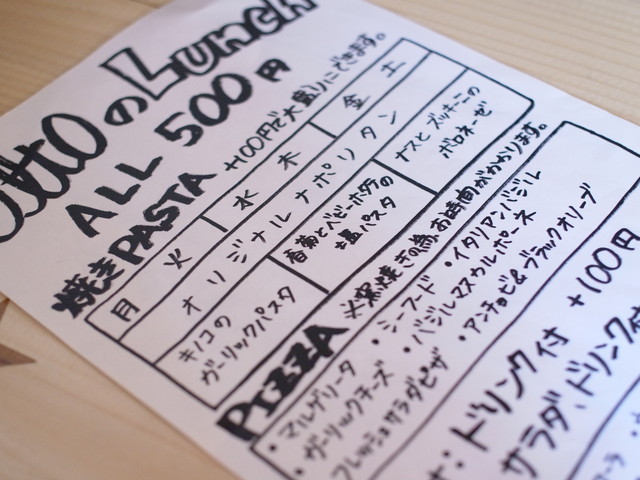 OttO の Lunch
ALL 500円
焼きPASTA +100円で大盛りにできます。
月 火 水 木 金 土
オリジナルナポリタン
キノコの
ガーリックパスタ
春菊とベビーホタテの
塩パスタ
ナスとズッキーニの
ボロネーゼ
PIZZA ※窯焼きの為、お時間がかかります。
・マルゲリータ ・シーフード ・イタリアンバジル
・ガーリックチーズ ・バジルマスカルポーネ
フレッシュサラダピザ ・アンチョビ&ブラックオリーブ
ドリンク付 +100円
サラダ、ドリンク